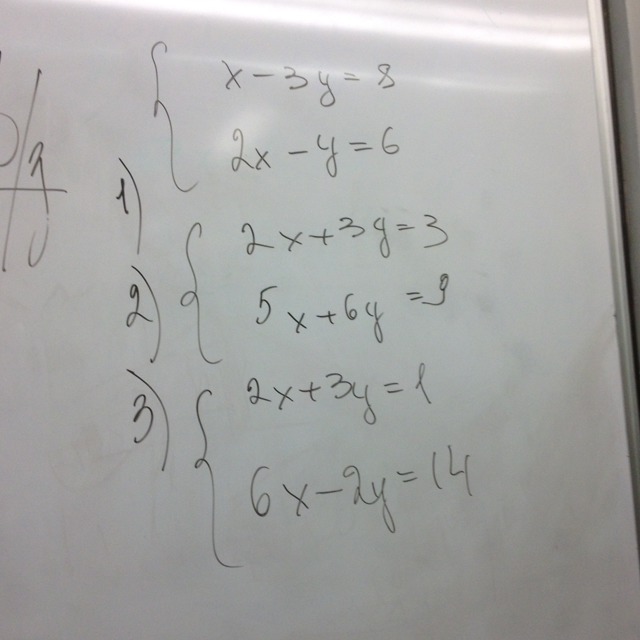 x - 3y = 8
2x - y = 6
1)
2x + 3y = 3
2)
5x + 6y = 9
3)
2x + 3y = 1
6x - 2y = 14